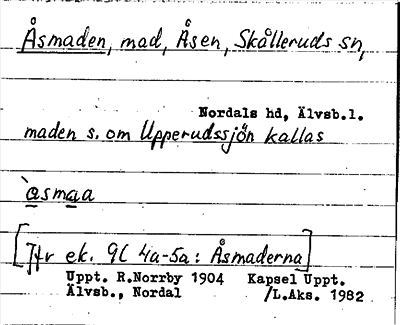 Åsmaden, mad, Åsen, Skålleruds sn,
Nordals hd, Älvsb.l.
maden s. om Upperudssjön kallas
`åsmaa
[Jfr ek. 9C 4a-5a: Åsmaderna]
Uppt. R.Norrby 1904 Kapsel Uppt.
Älvsb., Nordal /L.Aks. 1982